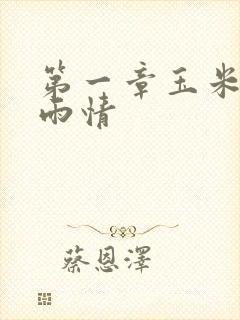 第一章玉米
雨情
蔡恩澤